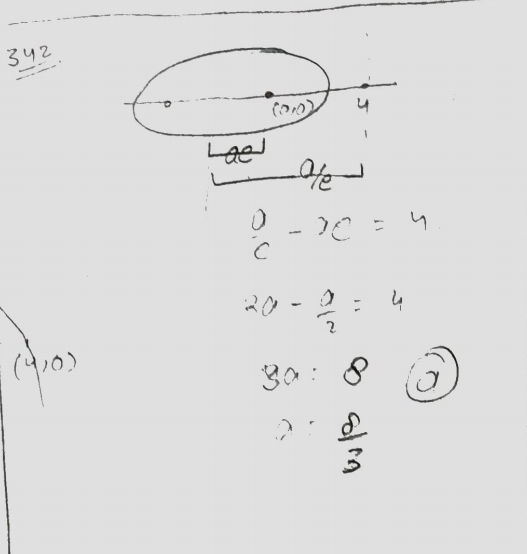 342
(0,0) 4
ae
a/e
a/e - ae = 4
2a - a/2 = 4
3a = 8 (a)
a = 8/3
(4,0)